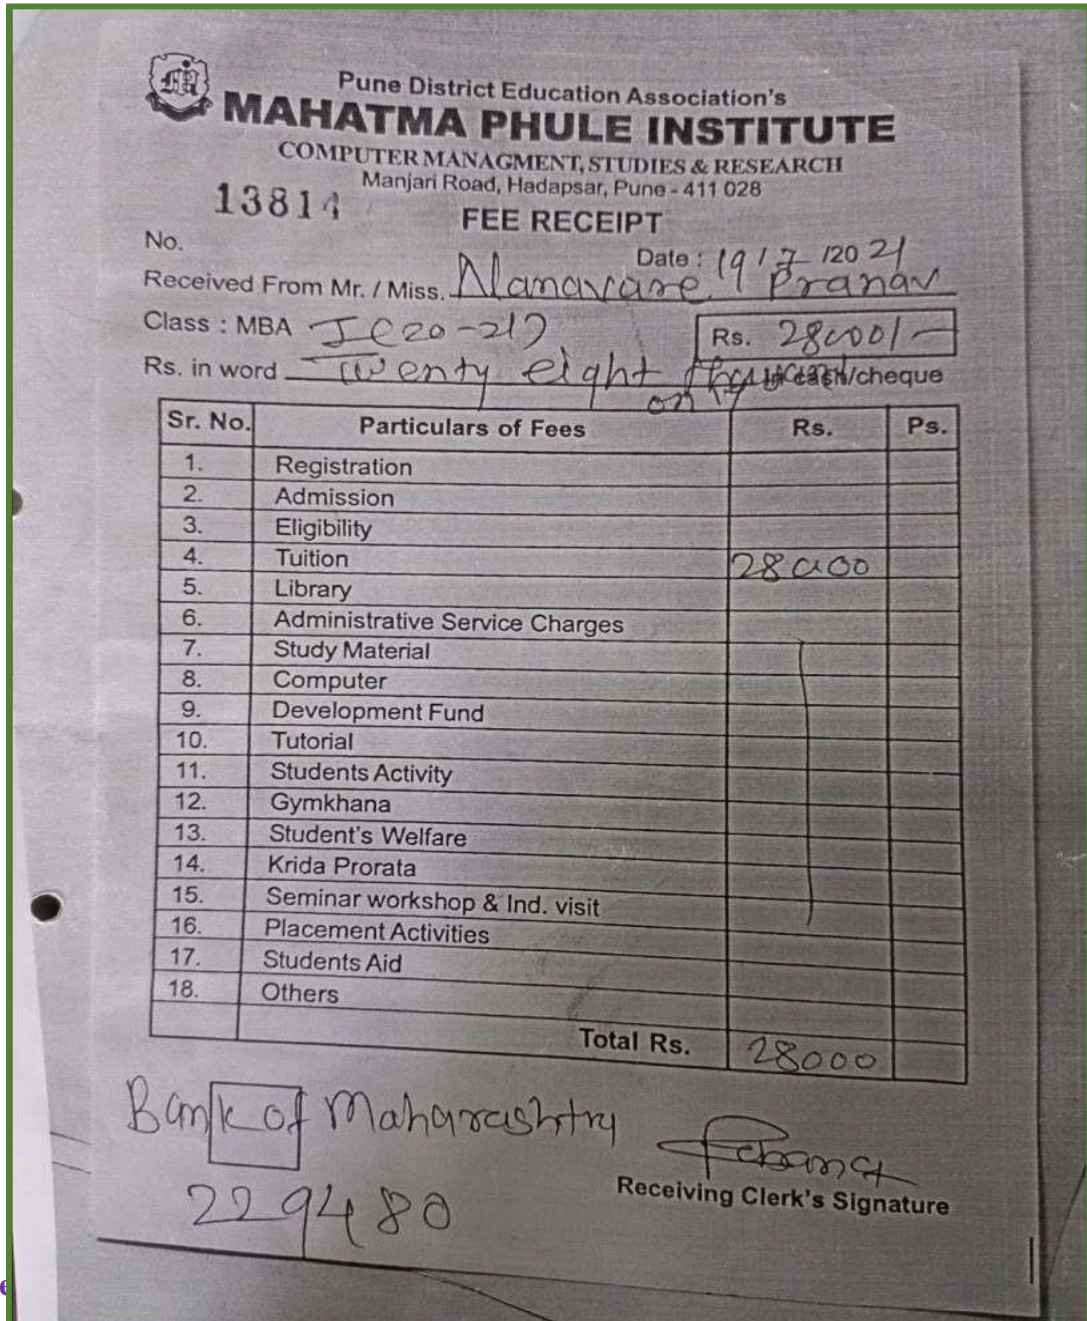 Pune District Education Association's
MAHATMA PHULE INSTITUTE
COMPUTER MANAGMENT, STUDIES & RESEARCH
Manjari Road, Hadapsar, Pune - 411 028
13814
FEE RECEIPT
No.
Date : 19 / 7 /2021
Received From Mr. / Miss. Nanavare Pranav
Class : MBA I (20-21)
Rs. 28000/-
Rs. in word Twenty eight /cheque
only
Sr. No. Particulars of Fees Rs. Ps.
1. Registration
2. Admission
3. Eligibility
4. Tuition 28000
5. Library
6. Administrative Service Charges
7. Study Material
8. Computer
9. Development Fund
10. Tutorial
11. Students Activity
12. Gymkhana
13. Student's Welfare
14. Krida Prorata
15. Seminar workshop & Ind. visit
16. Placement Activities
17. Students Aid
18. Others
Total Rs. 28000
Bank of Maharashtra
Receiving Clerk's Signature
229480